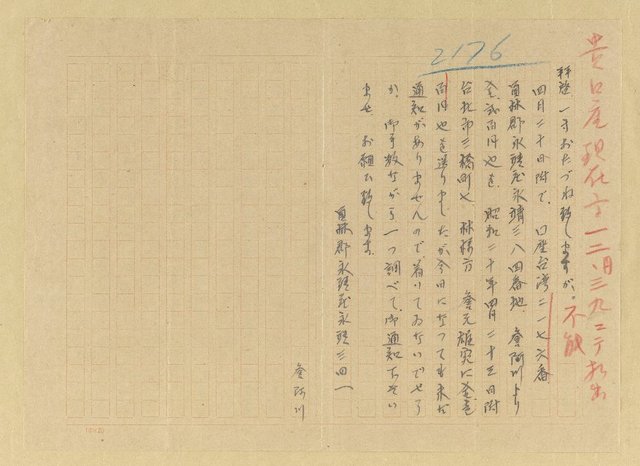 2176
貴口座現在高一二、三九
不能
拝啓一寸おたづね致しますが。
四月二十日附で、口座台湾二一七六番
員林郡永靖庄永靖三八四番地 詹阿川より
金貳百円也を、昭和二十年四月二十三日附
台北市三橋町七 林様方 詹元雄宛に金壱
百円也を送りましたが今日になっても未だ
通知がありませんので着いてゐないでせう
か、御手数ながら一つ調べて、御通知下さい
ませ、お願ひ致します。
員林郡永靖庄永靖三四一
詹阿川